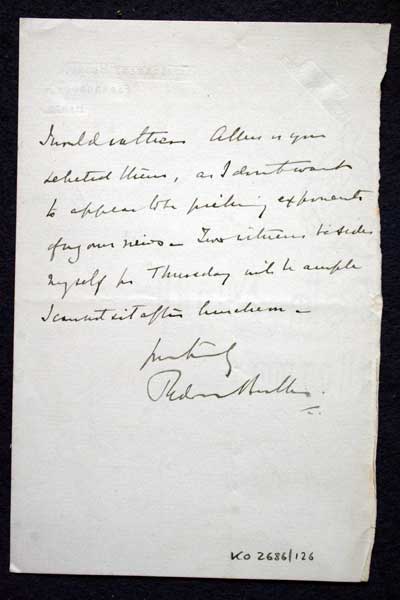 I would rather Allen or you
selected them, as I don't want
to appear to be picking exponents
of my own views – Two witnesses besides
myself for Thursday will be ample
I cannot sit after luncheon –
Yours truly
Redvers Buller
KO 2686/126